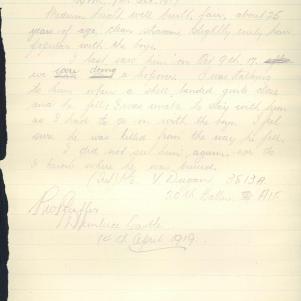 Medium height well built, fair, about 25
years of age, clean shaven. Slightly curly hair
popular with the boys.
I last saw him on Oct 9th 17.
we were doing a hopover. I was talking
to him when a shell landed quite close
and he fell; I was unable to stay with him
as I had to go on with the boys. I feel
sure he was killed from the way he fell.
I did not see him again, nor do
I know where he was buried.
V. Dugan 3813A
20th Battn. AIF
Castle
14th April 1919.